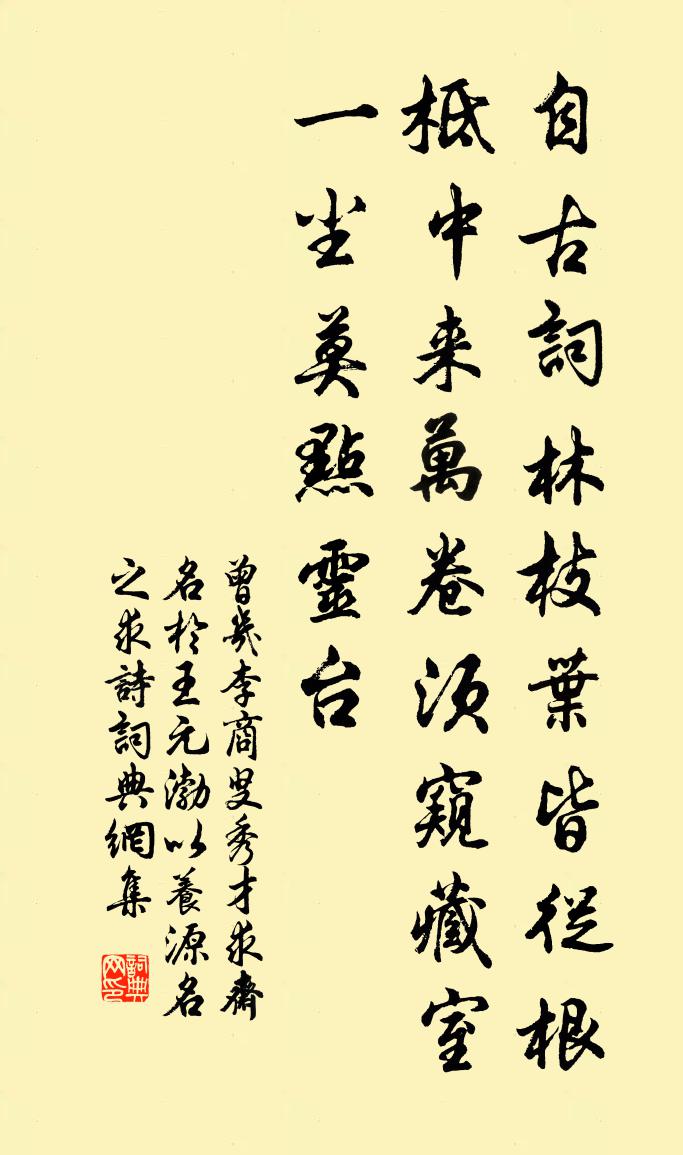 自古詞林枝葉皆從根
柢中来萬卷須窺藏室
一尘莫點靈台
曾幾李商叟秀才求齋
名於王元渤以養源名
之求詩詞典網集
詞典网印